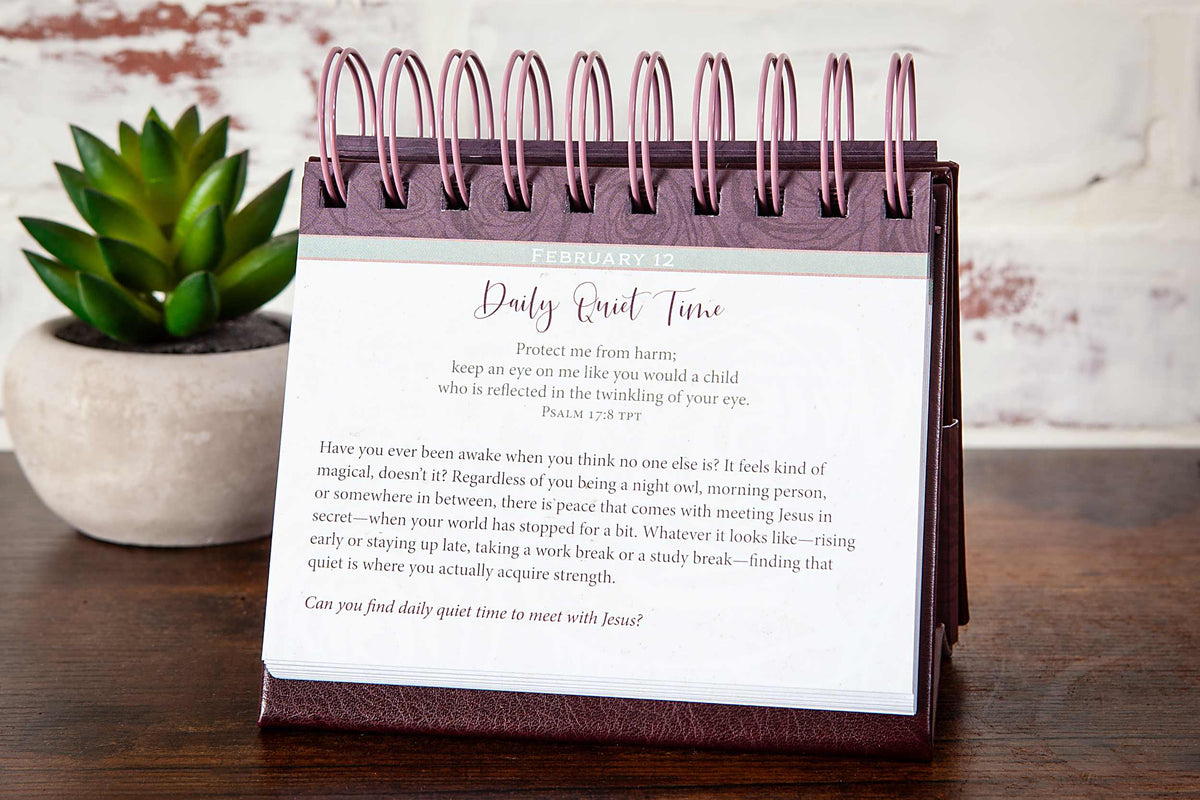 February 12
Daily Quiet Time
Protect me from harm;
keep an eye on me like you would a child
who is reflected in the twinkling of your eye.
Psalm 17:8 TPT
Have you ever been awake when you think no one else is? It feels kind of
magical, doesn't it? Regardless of you being a night owl, morning person,
or somewhere in between, there is peace that comes with meeting Jesus in
secret—when your world has stopped for a bit. Whatever it looks like—rising
early or staying up late, taking a work break or a study break—finding that
quiet is where you actually acquire strength.
Can you find daily quiet time to meet with Jesus?